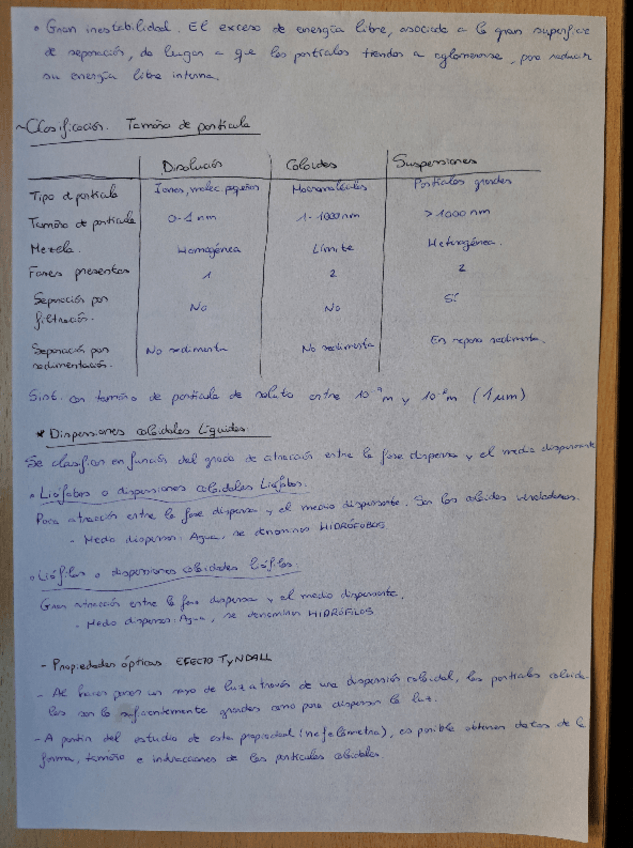 • Gran inestabilidad. El exceso de energía libre, asociado a la gran superficie
de separación, da lugar a que las partículas tiendan a aglomerarse, para reducir
su energía libre interna.
~Clasificación. Tamaño de partícula
Disolución Coloides Suspensiones
Tipo de partícula Iones, molec pequeñas Macromoléculas Partículas grandes
Tamaño de partícula 0-1 nm 1-1000nm >1000 nm
Mezcla. Homogénea Límite Heterogénea.
Fases presentes 1 2 2
Separación por No No Sí
filtración.
Separación por No sedimenta No sedimenta En reposo sedimenta.
sedimentación.
Sist. con tamaño de partícula de soluto entre 10⁻⁹m y 10⁻⁶m (1μm)
* Dispersiones coloidales líquidas.
Se clasifican en función del grado de atracción entre la fase dispersa y el medio dispersante
• Liófobos o dispersiones coloidales liófobas.
Poca atracción entre la fase dispersa y el medio dispersante. Son los coloides verdaderos.
- Medo dispersan: Agua, se denominan HIDRÓFOBOS
• Liófilos o dispersiones coloidales liófilas.
Gran atracción entre la fase dispersa y el medio dispersante.
- Medo dispersan: Agua, se denominan HIDRÓFILOS
- Propiedades ópticas EFECTO TYNDALL
- Al hacer pasar un rayo de luz a través de una dispersión coloidal, las partículas coloida-
les son lo suficientemente grandes como para dispersar la luz.
- A partir del estudio de esta propiedad (nefelometría), es posible obtener datos de la
forma, tamaño e interacciones de las partículas coloidales.